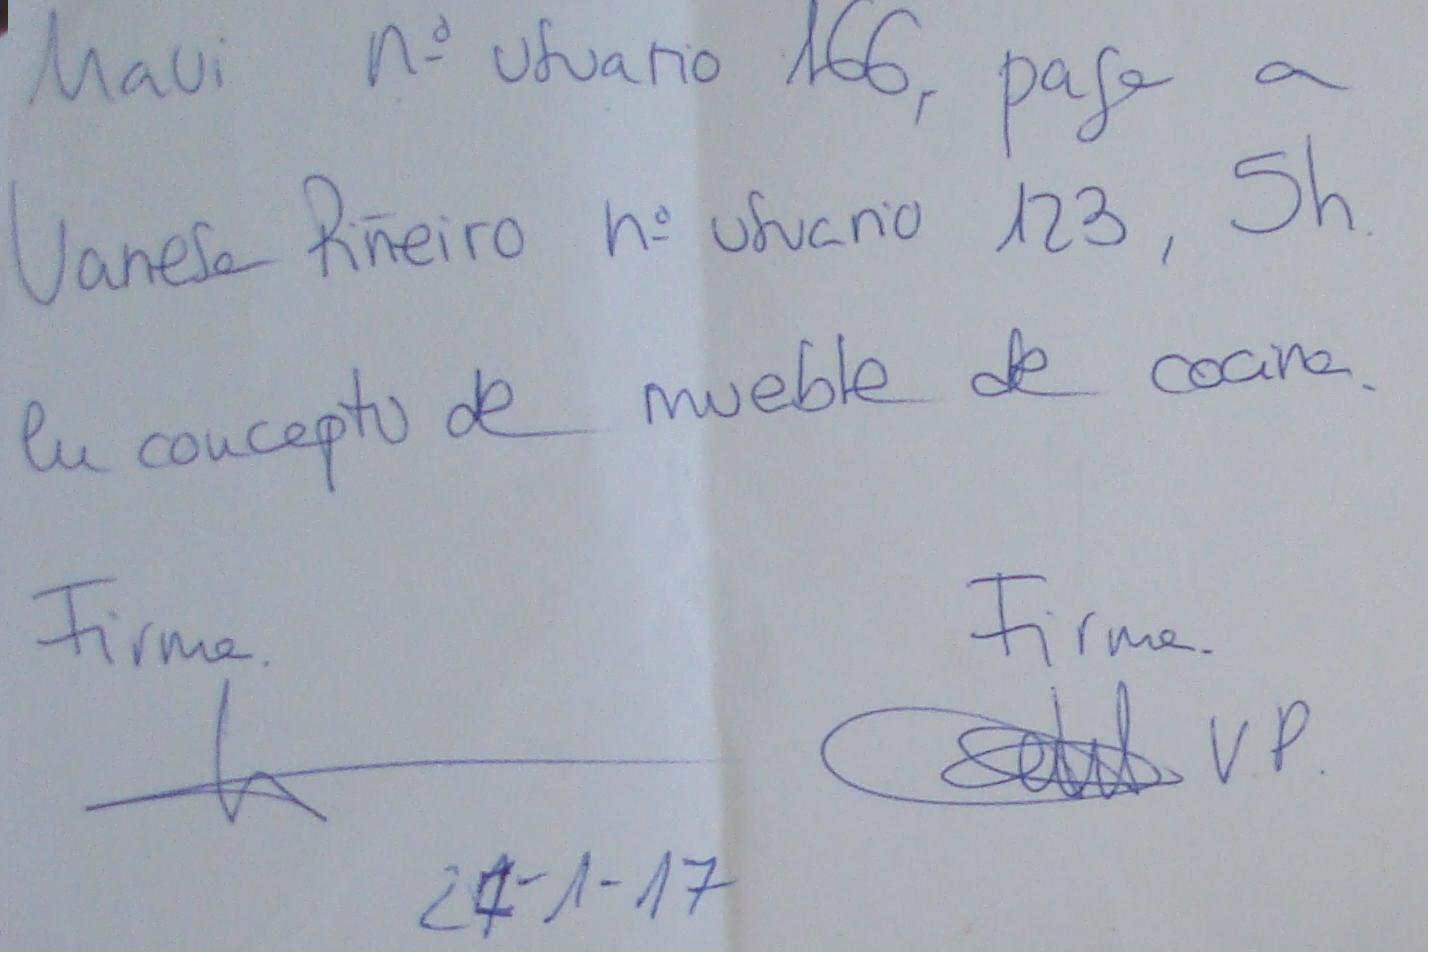 Mavi nº usuario 166, pasa a
Vanesa Piñeiro nº usuario 123, 5h.
en concepto de mueble de cocina.
Firma. Firma.
V.P.
-1-17